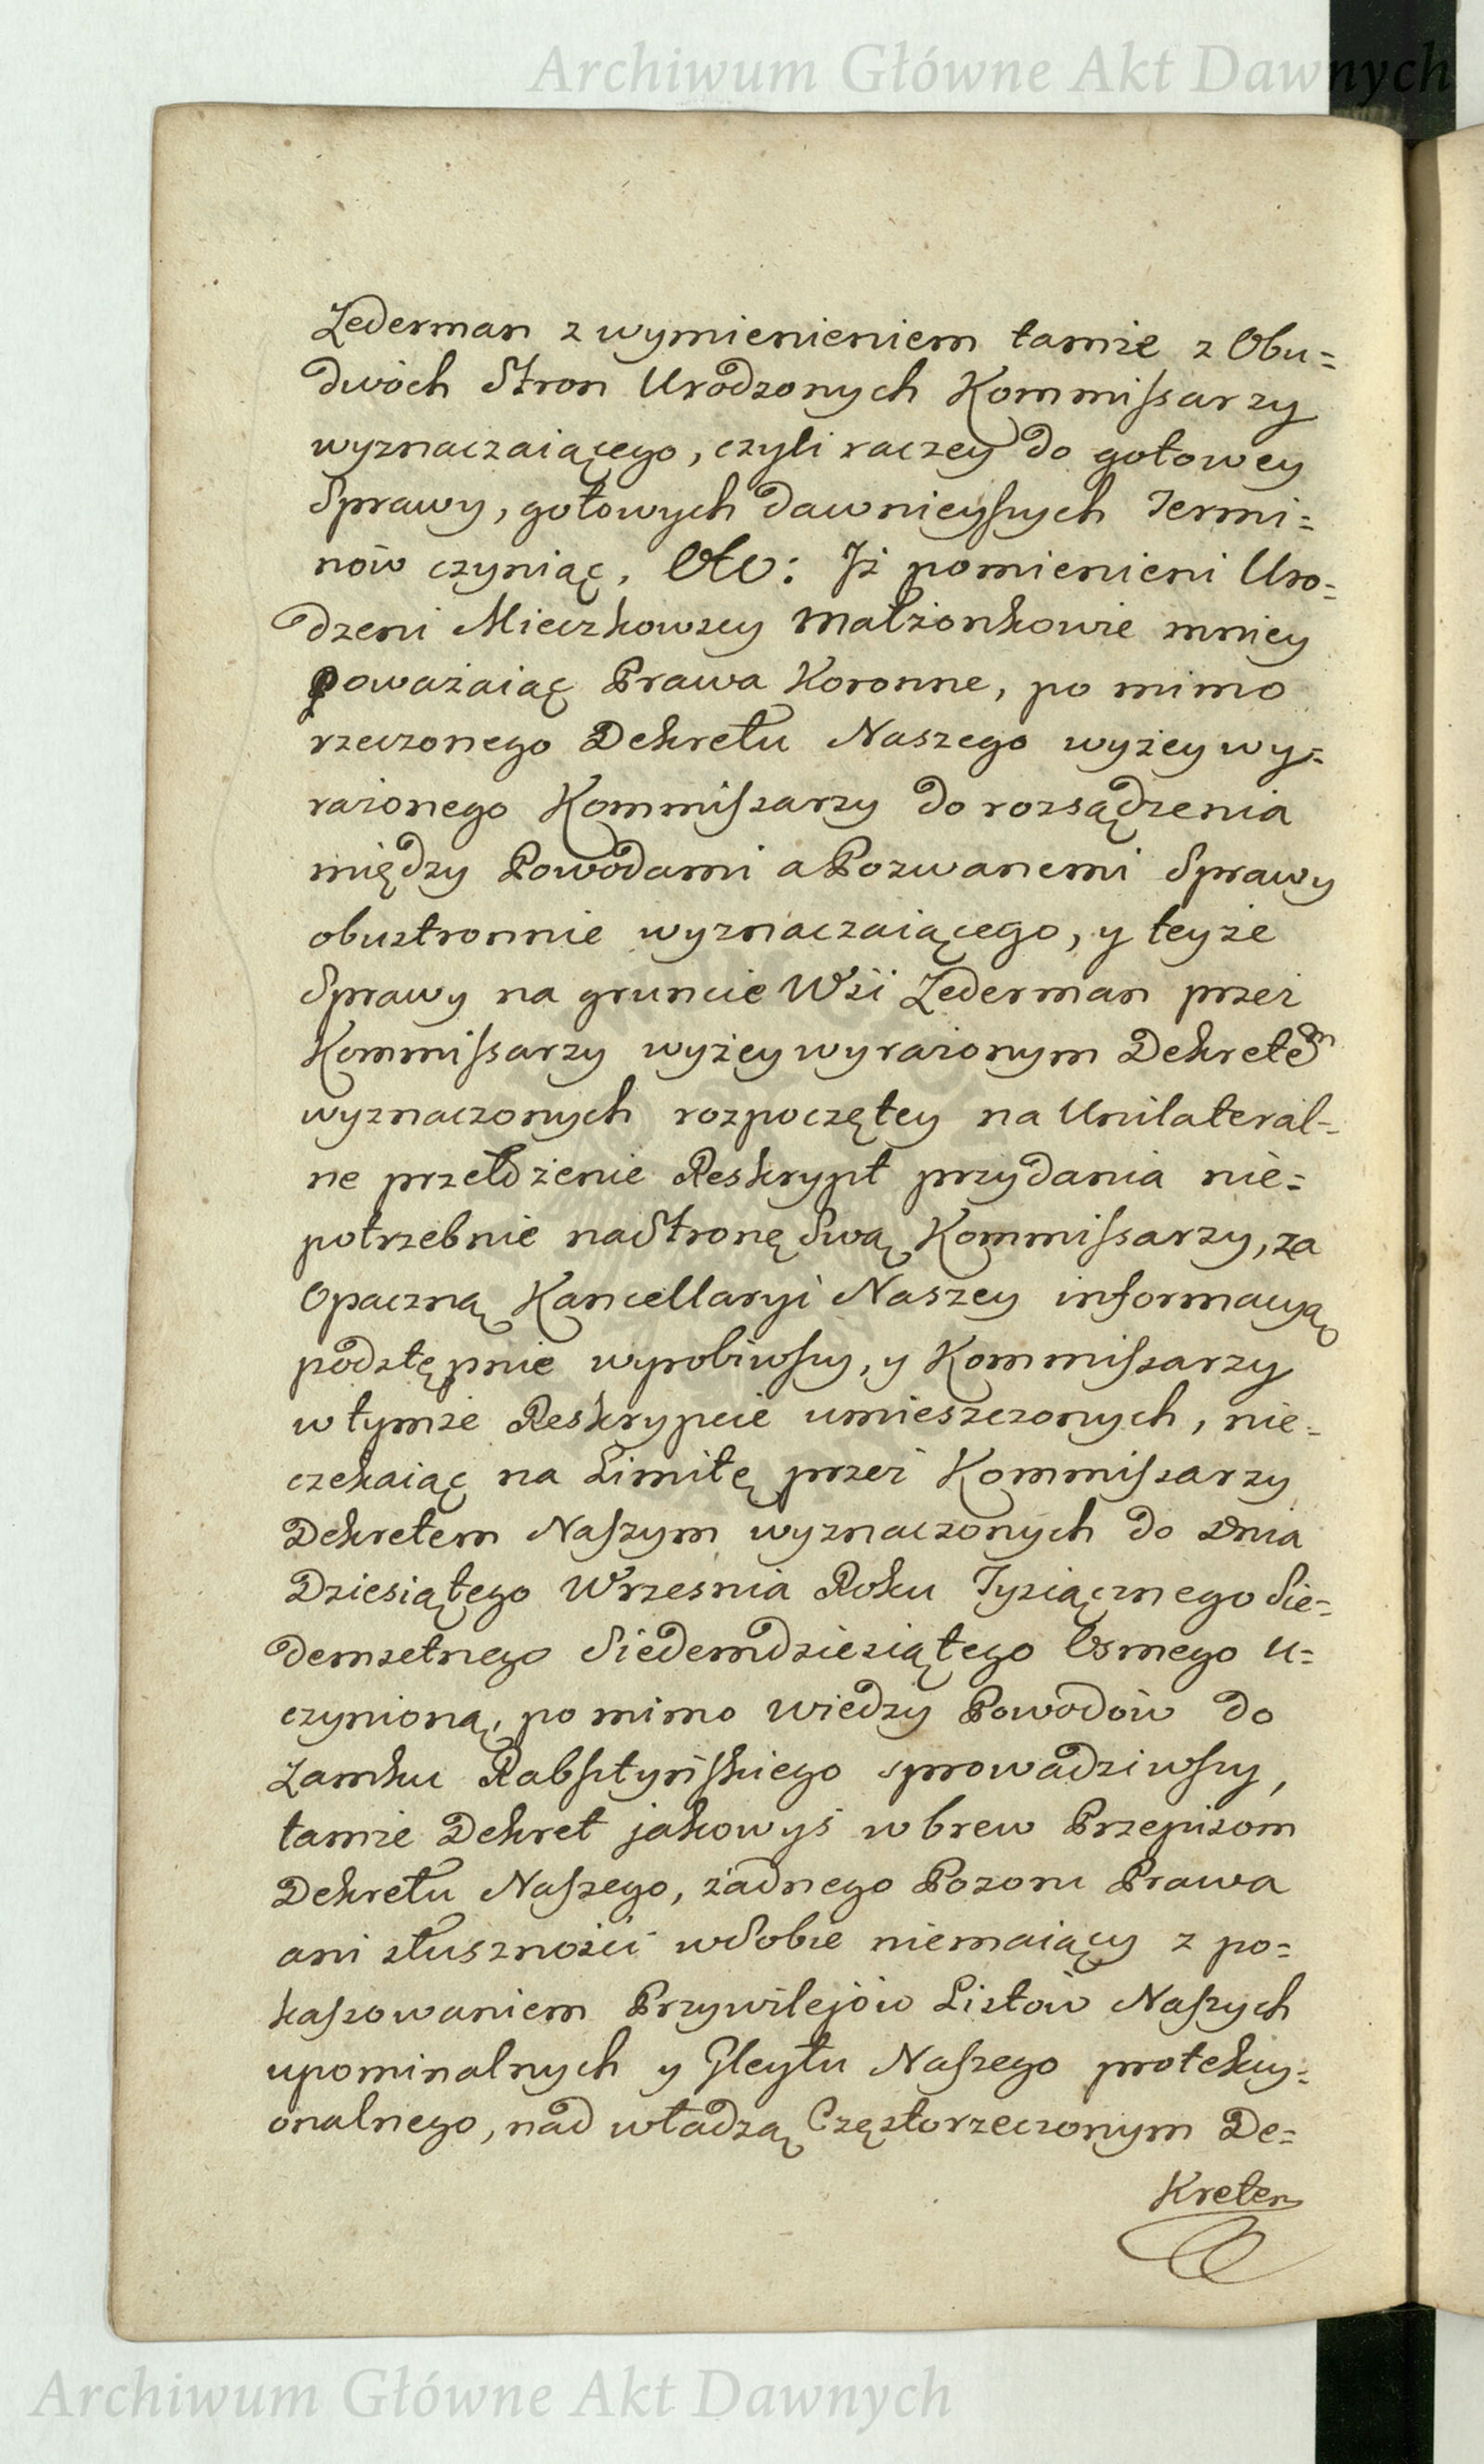 Archiwum Główne Akt Dawnych
Zederman z wymienieniem tamże z Obu=
dwóch Stron Urodzonych Kommissarzy
wyznaczaiącego, czyli raczey do gotowey
Sprawy, gotowych dawnieyszych Termi=
nów czyniąc, Oto: Iż pomienieni Uro=
dzeni Mieczkowscy Małżonkowie mniey
poważaiąc Prawa Koronne, po mimo
rzeczonego Dekretu Naszego wyżey wy=
rażonego Kommissarzy do rozsądzenia
między Powodami a Pozwanemi Sprawy
obustronnie wyznaczaiącego, y teyże
Sprawy na gruncie Wsi Zederman przez
Kommissarzy wyżey wyrażonym Dekretem
wyznaczonych rozpoczętey na Unilateral=
ne przełożenie Reskrypt przydania nie=
potrzebnie na Stronę Swą Kommissarzy, za
Opaczną Kancellaryi Naszey informacyą
podstępnie wyrobiwszy, y Kommissarzy
w tymże Reskrypcie umieszczonych, nie=
czekaiąc na Limitę przez Kommissarzy
Dekretem Naszym wyznaczonych do Dnia
Dziesiątego Września Roku Tysiącznego Sie=
demsetnego Siedemdziesiątego Osmego u=
czynioną, po mimo wiedzy Powodów do
Zamku Rabsztyńskiego sprowadziwszy,
tamże Dekret jakowyś w brew Przepisom
Dekretu Naszego, żadnego Pozoru Prawa
ani słuszności w Sobie niemaiący z po=
kassowaniem Przywilejów Listów Naszych
upominalnych y Gleytu Naszego protekcy=
onalnego, nad władzą Częstorzeczonym De=
kretem
Archiwum Główne Akt Dawnych